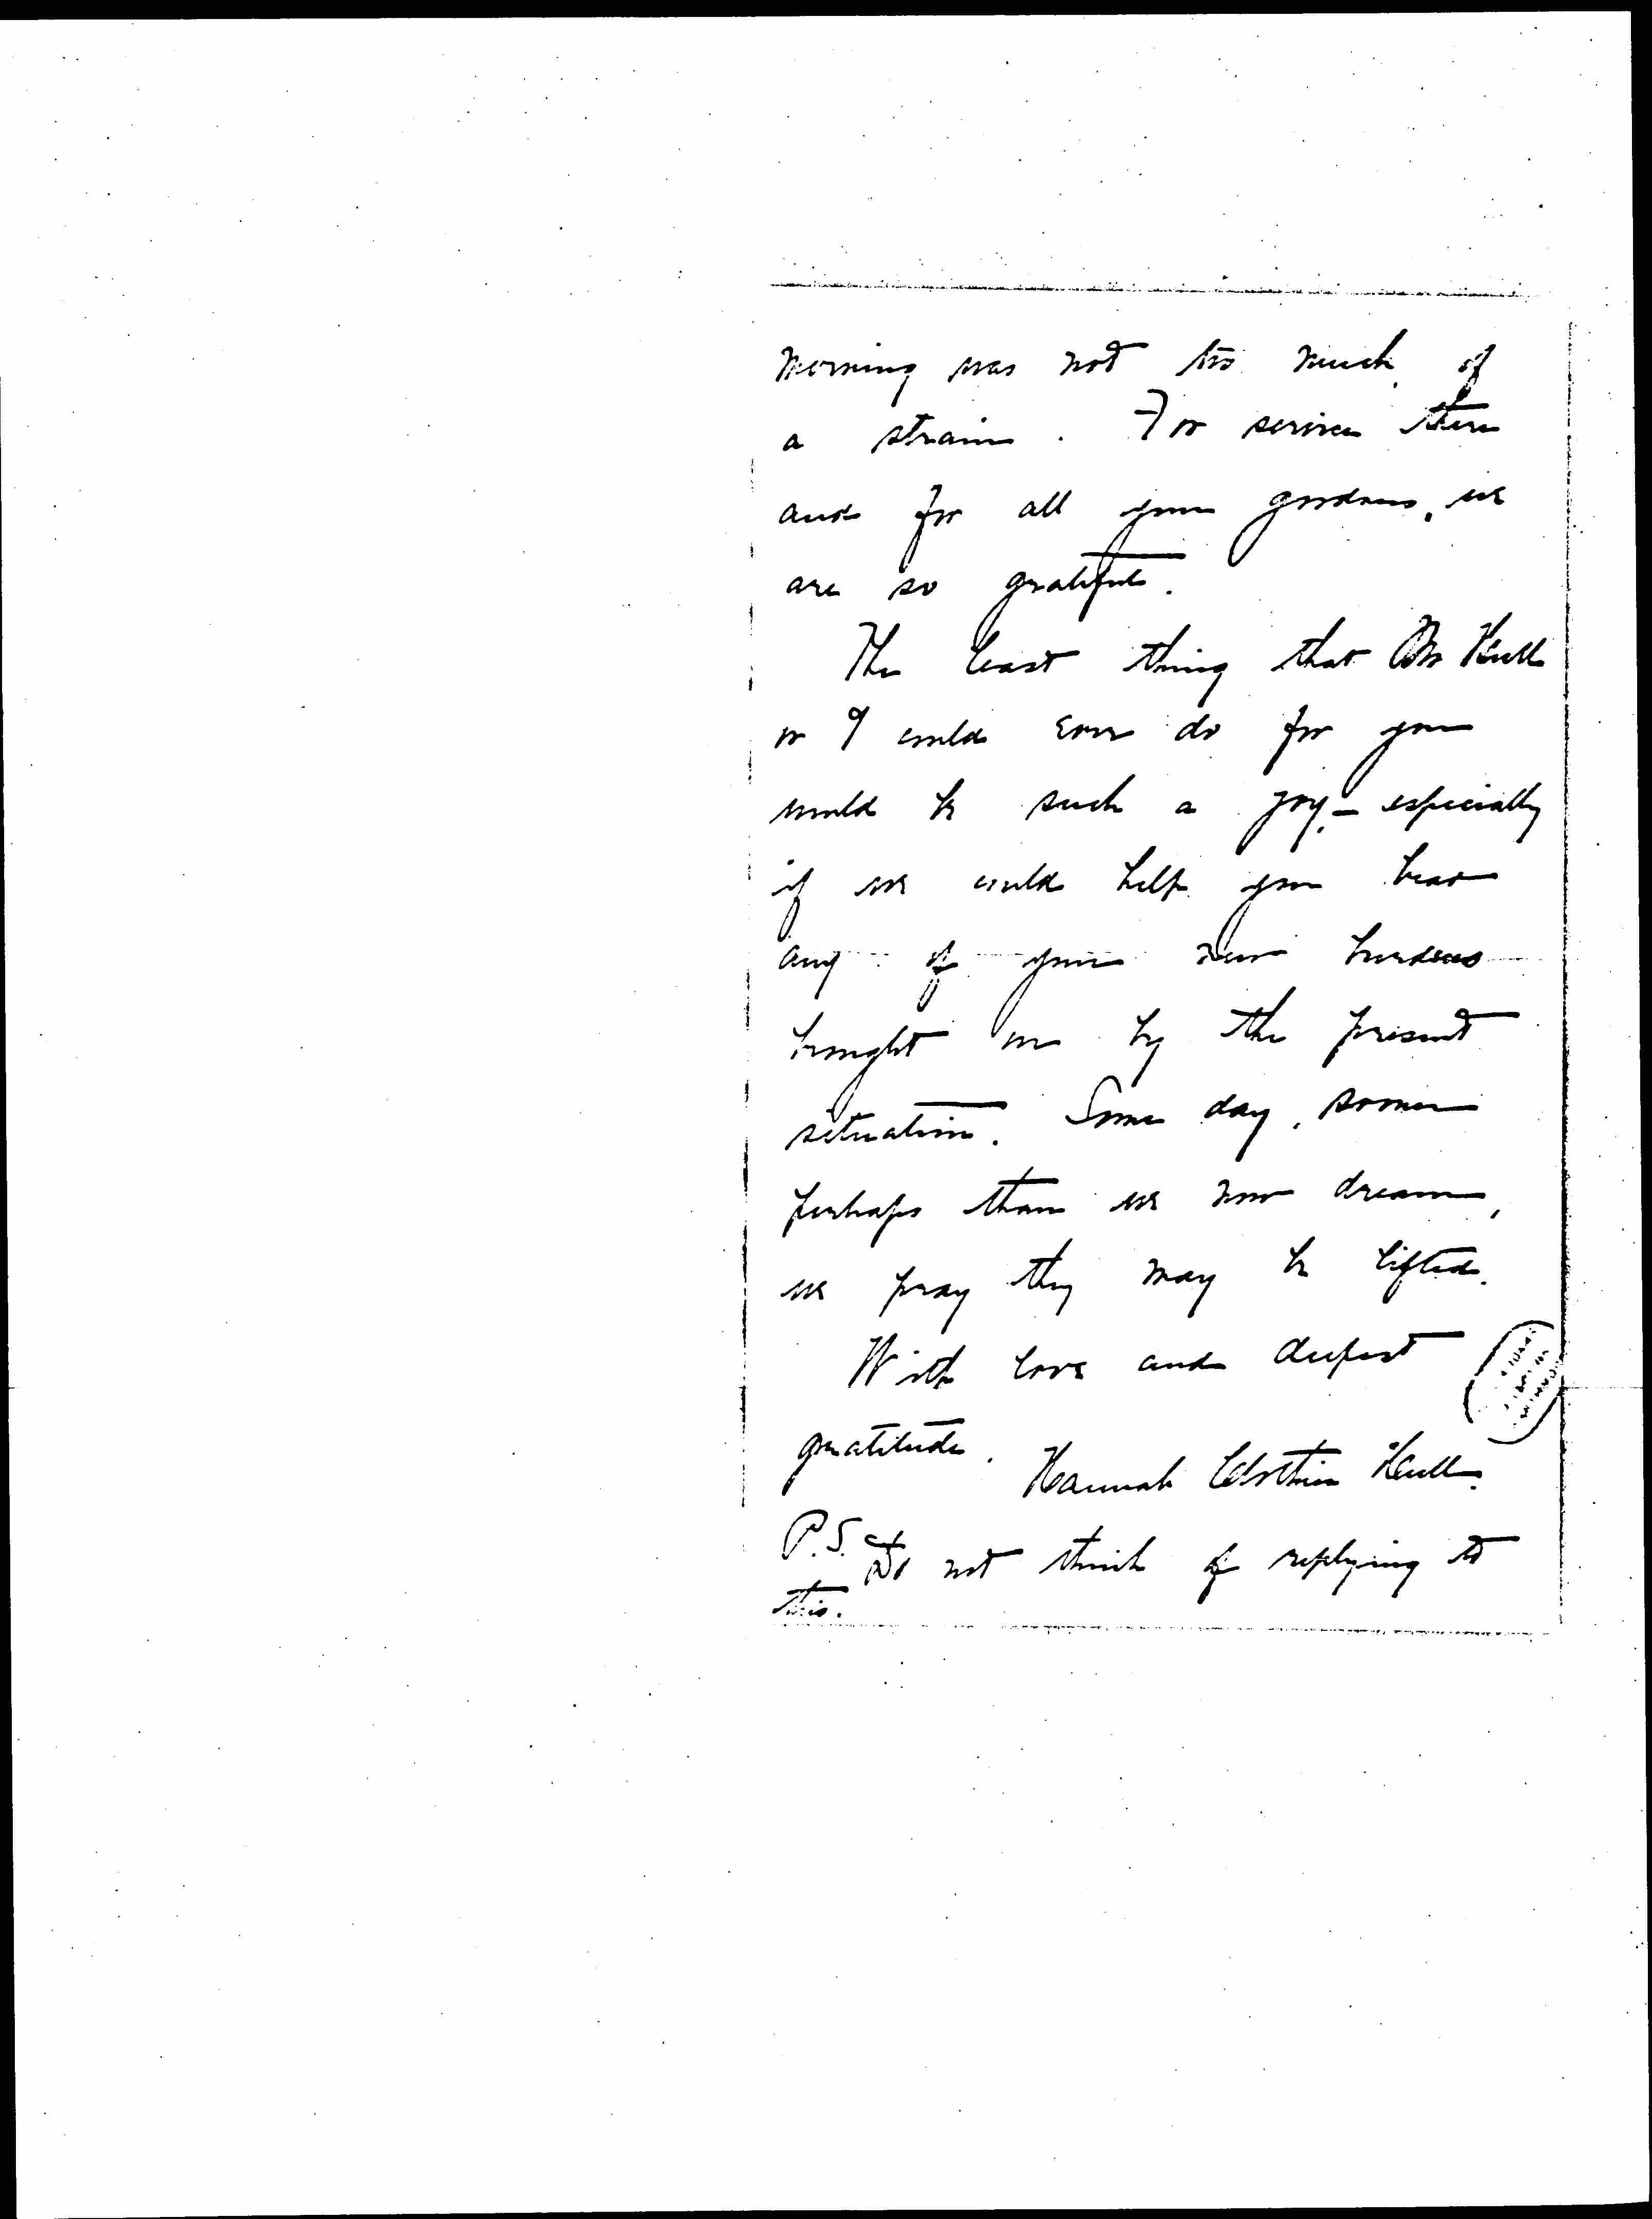 morning was not too much of
a strain. For service there
and for all your goodness, we
are so grateful.
The least thing that Mr Hull
or I could ever do for you
would be such a joy - especially
if we could help you bear
any of your new burdens
brought on by the present
situation. Some day, sooner
perhaps than we now dream,
we pray they may be lifted.
With love and deepest
gratitude.
Hannah Clothier Hull.
P.S. Do not think of replying to
this.